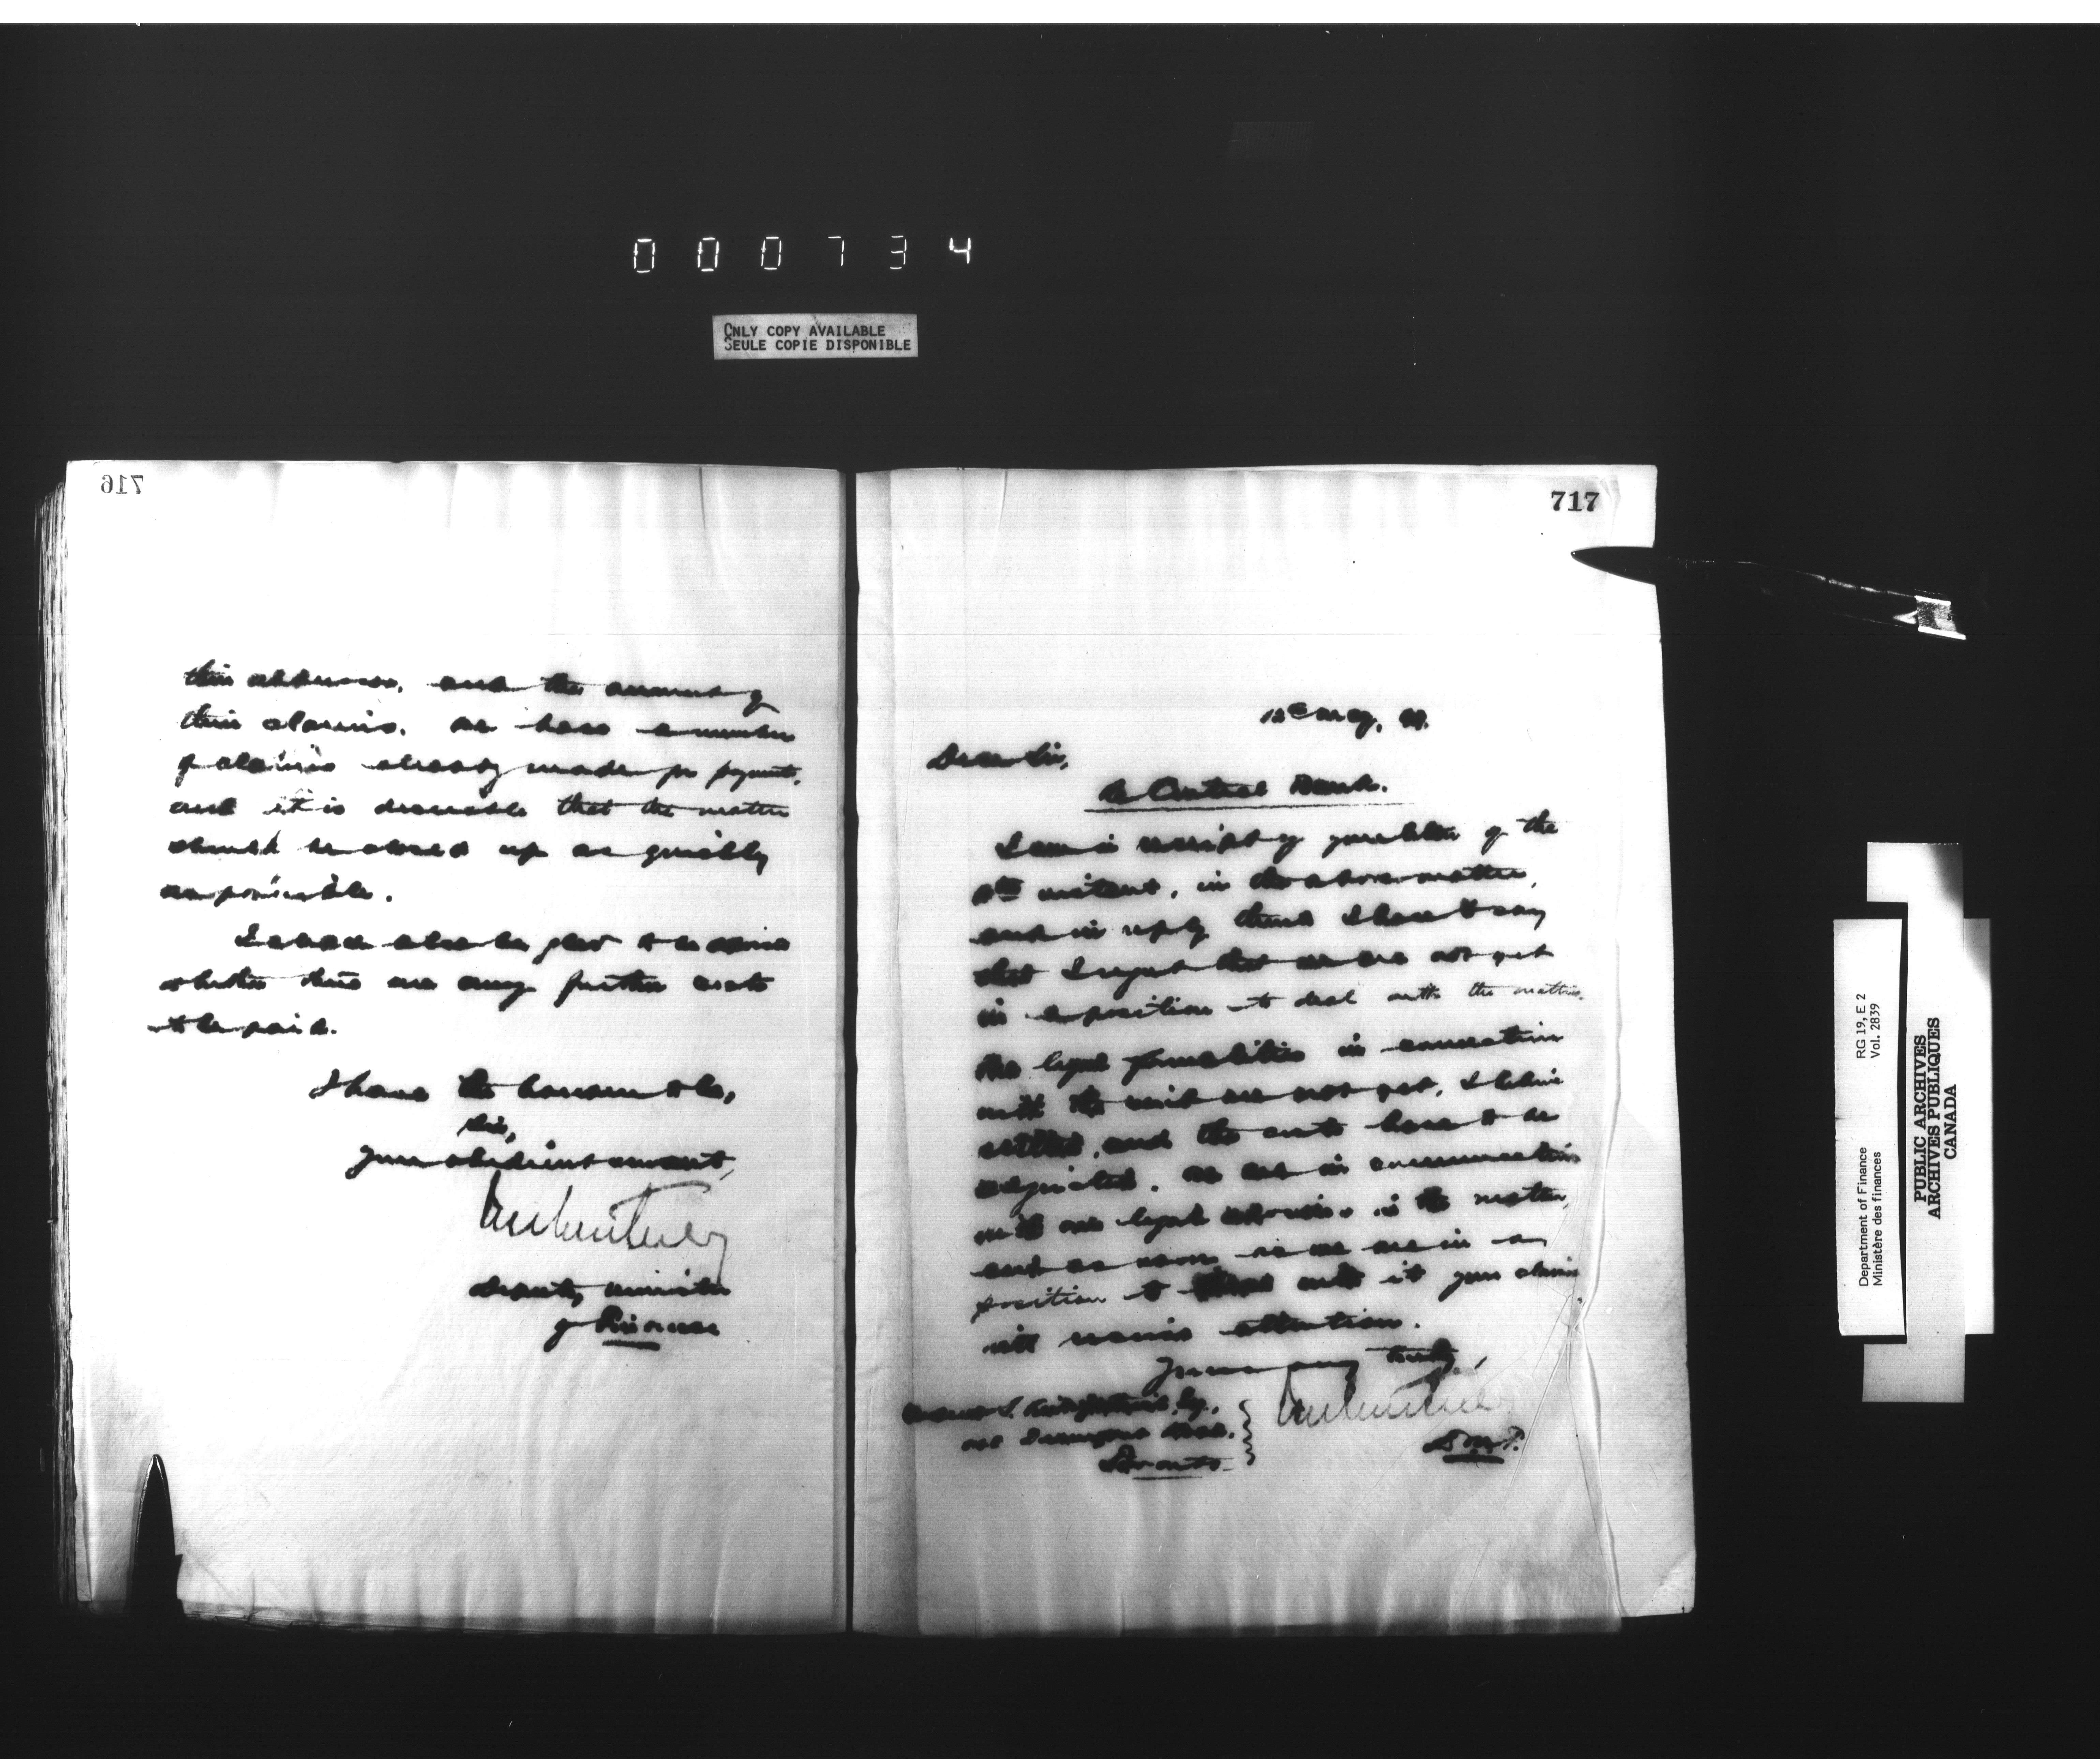 000734
ONLY COPY AVAILABLE
SEULE COPIE DISPONIBLE
716
their addresses, and the amount of
their claims. We have a number
of claims already made for payment,
and it is desirable that the matter
should be closed up as quickly
as possible.
I should also be glad to be advised
whether there are any further costs
to be paid.
I have the honour to be,
Sir,
Your obedient servant,
Deputy Minister
of Finance
717
12th May, 99.
Dear Sir,
Re Central Bank.
I am in receipt of your letter of the
instant, in the above matter,
and in reply thereto I have to say
that I regret that we are not yet
in a position to deal with the matter.
The legal formalities in connection
with the are not yet, I believe
settled, and the costs have to be
adjusted. We are in communication
with our legal advisers in the matter,
and as soon as we are in a
position to deal with it your claim
will receive attention.
Yours very truly,
Esq.,
Toronto
D.M.F.
Department of Finance
Ministère des finances
RG 19, E 2
Vol. 2839
PUBLIC ARCHIVES
ARCHIVES PUBLIQUES
CANADA